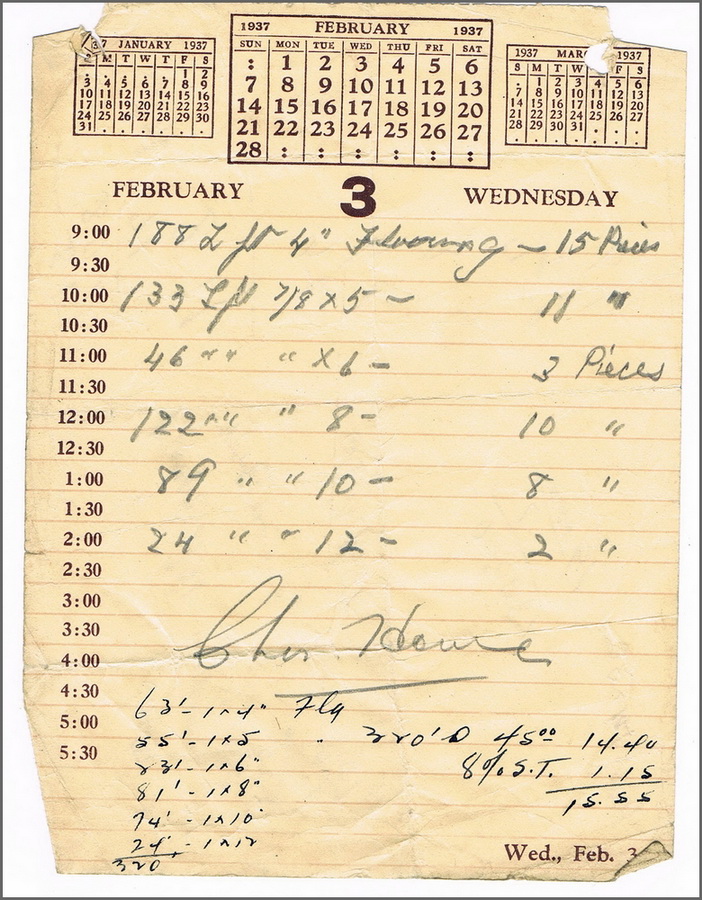 1937 JANUARY 1937
S M T W T F S
. . . . . 1 2
3 4 5 6 7 8 9
10 11 12 13 14 15 16
17 18 19 20 21 22 23
24 25 26 27 28 29 30
31 . . . . . .
1937 FEBRUARY 1937
SUN MON TUE WED THU FRI SAT
: 1 2 3 4 5 6
7 8 9 10 11 12 13
14 15 16 17 18 19 20
21 22 23 24 25 26 27
28 : : : : : :
1937 MAR 1937
S M T W T F S
. 1 2 3 4 5 6
7 8 9 10 11 12 13
14 15 16 17 18 19 20
21 22 23 24 25 26 27
28 29 30 31 . . .
FEBRUARY 3 WEDNESDAY
9:00 188 L ft 4" Flooring – 15 Pieces
9:30
10:00 133 L ft 7/8 x 5 – 11 "
10:30
11:00 46 " " " x 6 – 3 Pieces
11:30
12:00 122 " " " 8 – 10 "
12:30
1:00 89 " " " 10 – 8 "
1:30
2:00 24 " " " 12 – 2 "
2:30
3:00
3:30 Chas. Howe
4:00
4:30 63' - 1x4" Flg
5:00 55' - 1x5 . 320' @ 45.00 14.40
5:30 23' - 1x6" 8% S.T. 1.15
81' - 1x8" 15.55
74' - 1x10"
24' - 1x12
320
Wed., Feb. 3